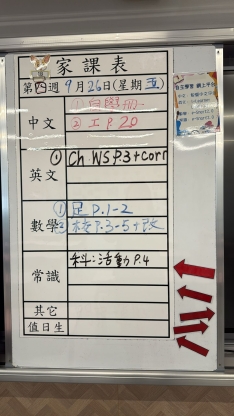 家課表
第四週9月26日(星期五)
中文
①自學冊-
②工P.20
英文
① Ch WS P.3+corr
數學
①足P.1-2
②P.3-5+改
常識
科:活動P.4
其它
值日生